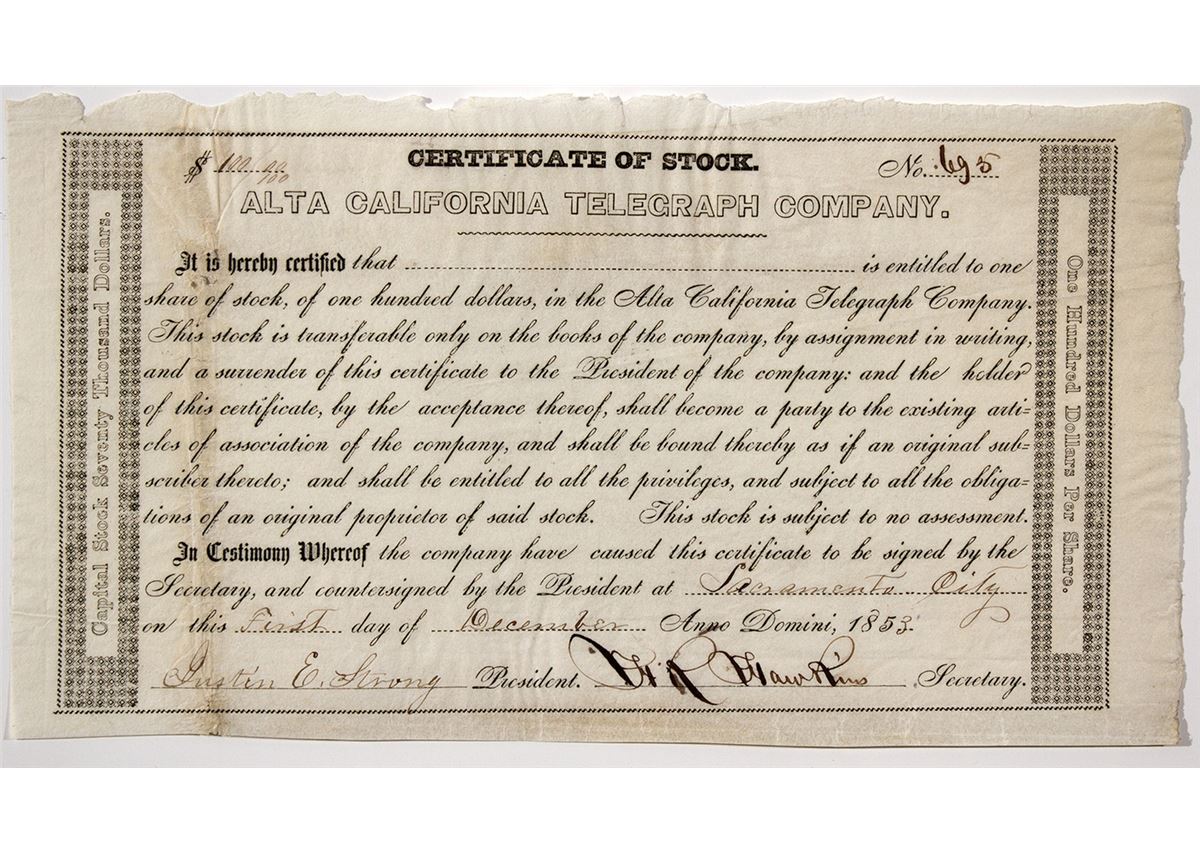 $ 100 00/100
CERTIFICATE OF STOCK.
No. 695
ALTA CALIFORNIA TELEGRAPH COMPANY.
It is hereby certified that is entitled to one
share of stock, of one hundred dollars, in the Alta California Telegraph Company.
This stock is transferable only on the books of the company, by assignment in writing,
and a surrender of this certificate to the President of the company: and the holder
of this certificate, by the acceptance thereof, shall become a party to the existing arti=
cles of association of the company, and shall be bound thereby as if an original sub=
scriber thereto; and shall be entitled to all the privileges, and subject to all the obliga=
tions of an original proprietor of said stock. This stock is subject to no assessment.
In Testimony Whereof the company have caused this certificate to be signed by the
Secretary, and countersigned by the President at Sacramento City
on this First day of December Anno Domini, 1853.
Justin E. Strong President. Hawkins Secretary.
Capital Stock Seventy Thousand Dollars.
One Hundred Dollars Per Share.